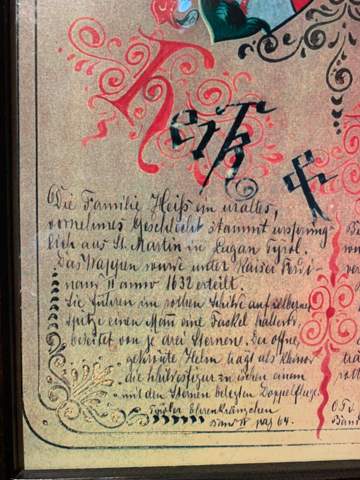 Heiß &
Die Familie Heiß ein uraltes,
vornehmes Geschlecht stammt ursprüng-
lich aus St. Martin in Lugan Tyrol.
Das Wappen wurde unter Kaiser Ferdi-
nand II anno 1632 erteilt.
Sie führen im rothen Schilde auf silberner
Spitze einen Mann eine Fackel haltend,
beseitet von je drei Sternen. Der offne,
gekrönte Helm trägt als Kleinod
die Schildesfigur zwischen einem
mit den Sternen belegten Doppelfluge.
Tyroler Ehrenkränzchen
Band II pag 64.